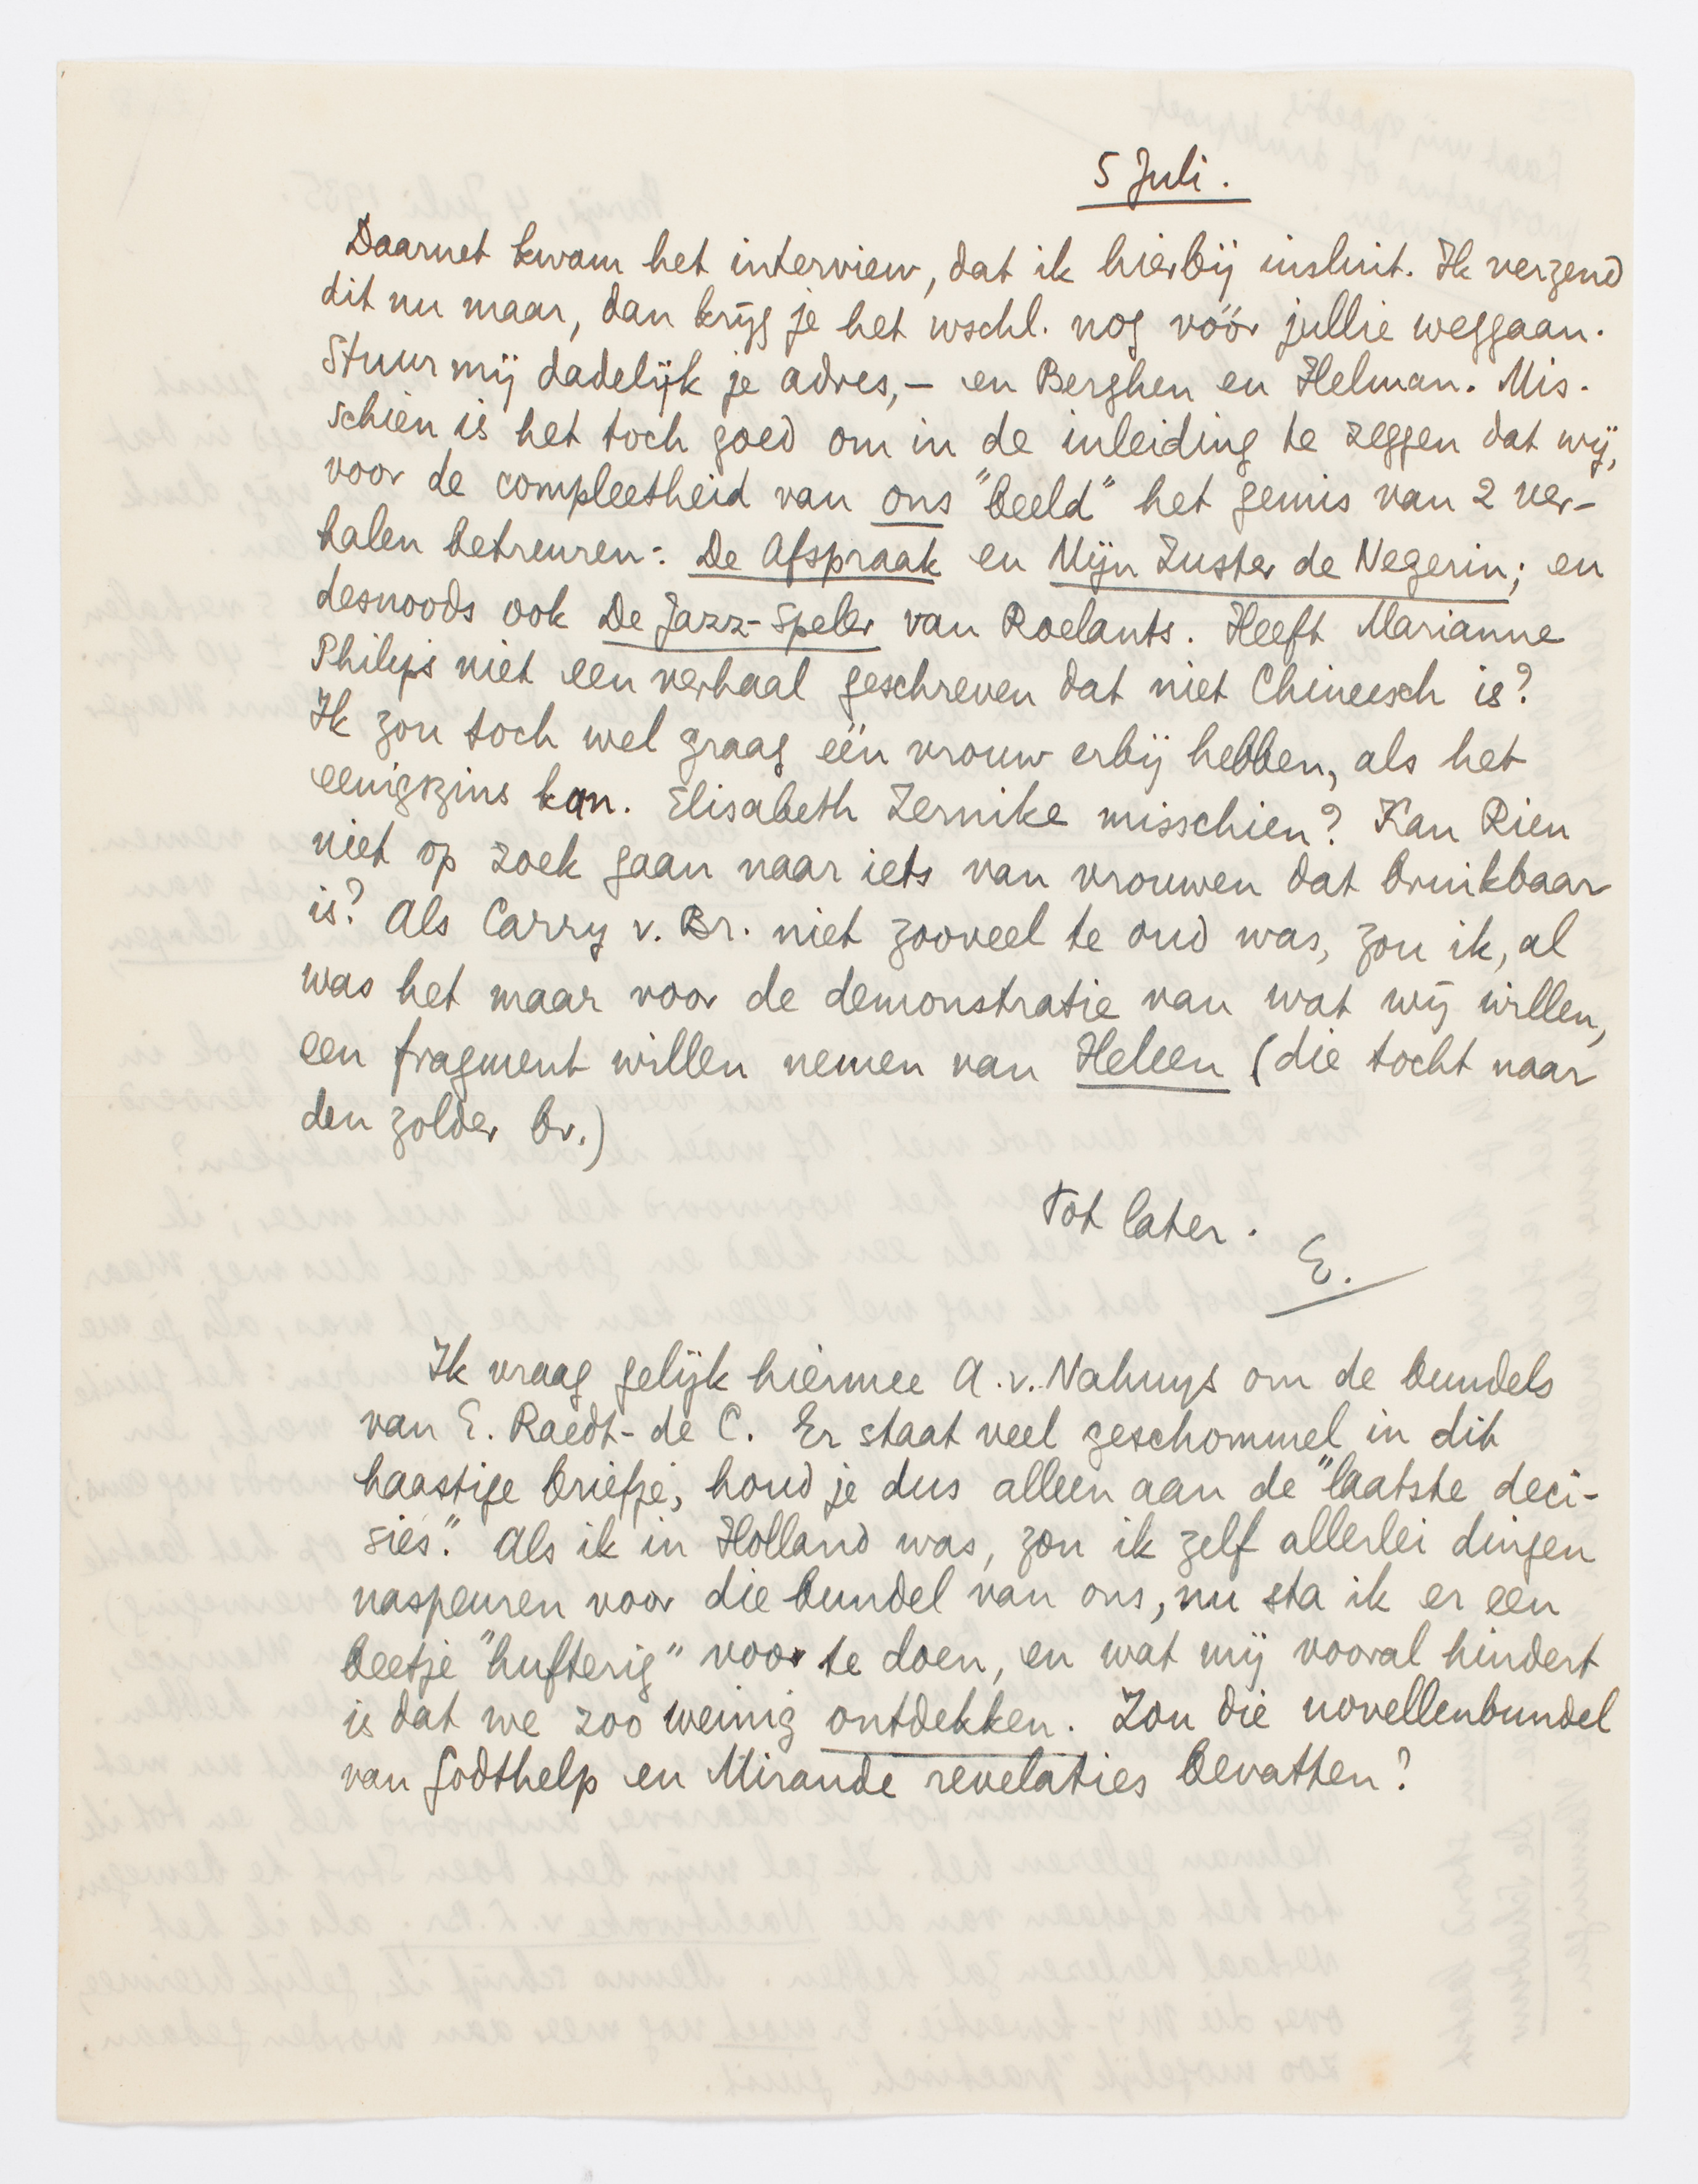 5 Juli.
Daarnet kwam het interview, dat ik hierbij insluit. Ik verzend
dit nu maar, dan krijg je het wschl. nog vóór jullie weggaan.
Stuur mij dadelijk je adres, – en Berghen en Helman. Mis-
schien is het toch goed om in de inleiding te zeggen dat wij,
voor de compleetheid van ons "beeld" het gemis van 2 ver-
halen betreuren: De Afspraak en Mijn Zuster de Negerin; en
desnoods ook De Jazz-Speler van Roelants. Heeft Marianne
Philips niet een verhaal geschreven dat niet Chineesch is?
Ik zou toch wel graag één vrouw erbij hebben, als het
eenigszins kan. Elisabeth Zernike misschien? Kan Rien
niet op zoek gaan naar iets van vrouwen dat bruikbaar
is? Als Carry v. Br. niet zooveel te oud was, zou ik, al
was het maar voor de demonstratie van wat wij willen,
een fragment willen nemen van Heleen (die tocht naar
den zolder bv.)
Tot later.
E.
Ik vraag gelijk hiermee A. v. Nahuys om de bundels
van E. Raedt-de C. Er staat veel geschommel in dit
haastige briefje, houd je dus alleen aan de "laatste deci-
sies". Als ik in Holland was, zou ik zelf allerlei dingen
naspeuren voor die bundel van ons, nu sta ik er een
beetje "hufterig" voor te doen, en wat mij vooral hindert
is dat we zoo weinig ontdekken. Zou die novellenbundel
van Godthelp en Mirande revelaties bevatten?